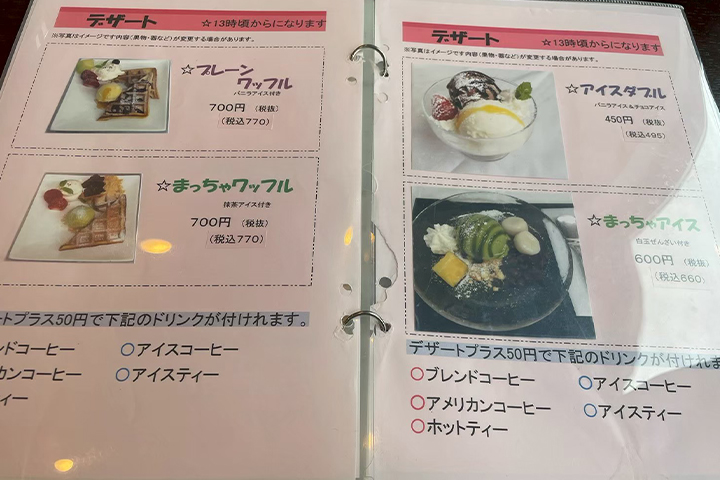 デザート ☆13時頃からになります
※写真はイメージです内容(果物・器など)が変更する場合があります。
☆プレーン
ワッフル
バニラアイス付き
700円 (税抜)
(税込770)
☆まっちゃワッフル
抹茶アイス付き
700円 (税抜)
(税込770)
ートプラス50円で下記のドリンクが付けれます。
ンドコーヒー ○アイスコーヒー
カンコーヒー ○アイスティー
ィー
デザート ☆13時頃からになります
※写真はイメージです内容(果物・器など)が変更する場合があります。
☆アイスダブル
バニラアイス&チョコアイス
450円 (税抜)
(税込495)
☆まっちゃアイス
白玉ぜんざい付き
600円 (税抜)
(税込660)
デザートプラス50円で下記のドリンクが付けれま
○ブレンドコーヒー ○アイスコーヒー
○アメリカンコーヒー ○アイスティー
○ホットティー